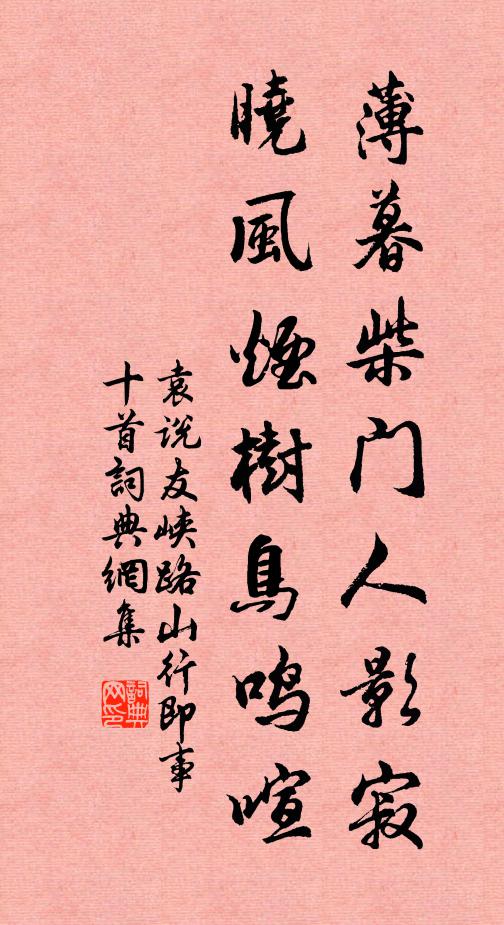 薄暮柴門人影寂
曉風煙樹鳥鳴喧
袁說友峽路山行即事
十首詞典網集
詞典網印